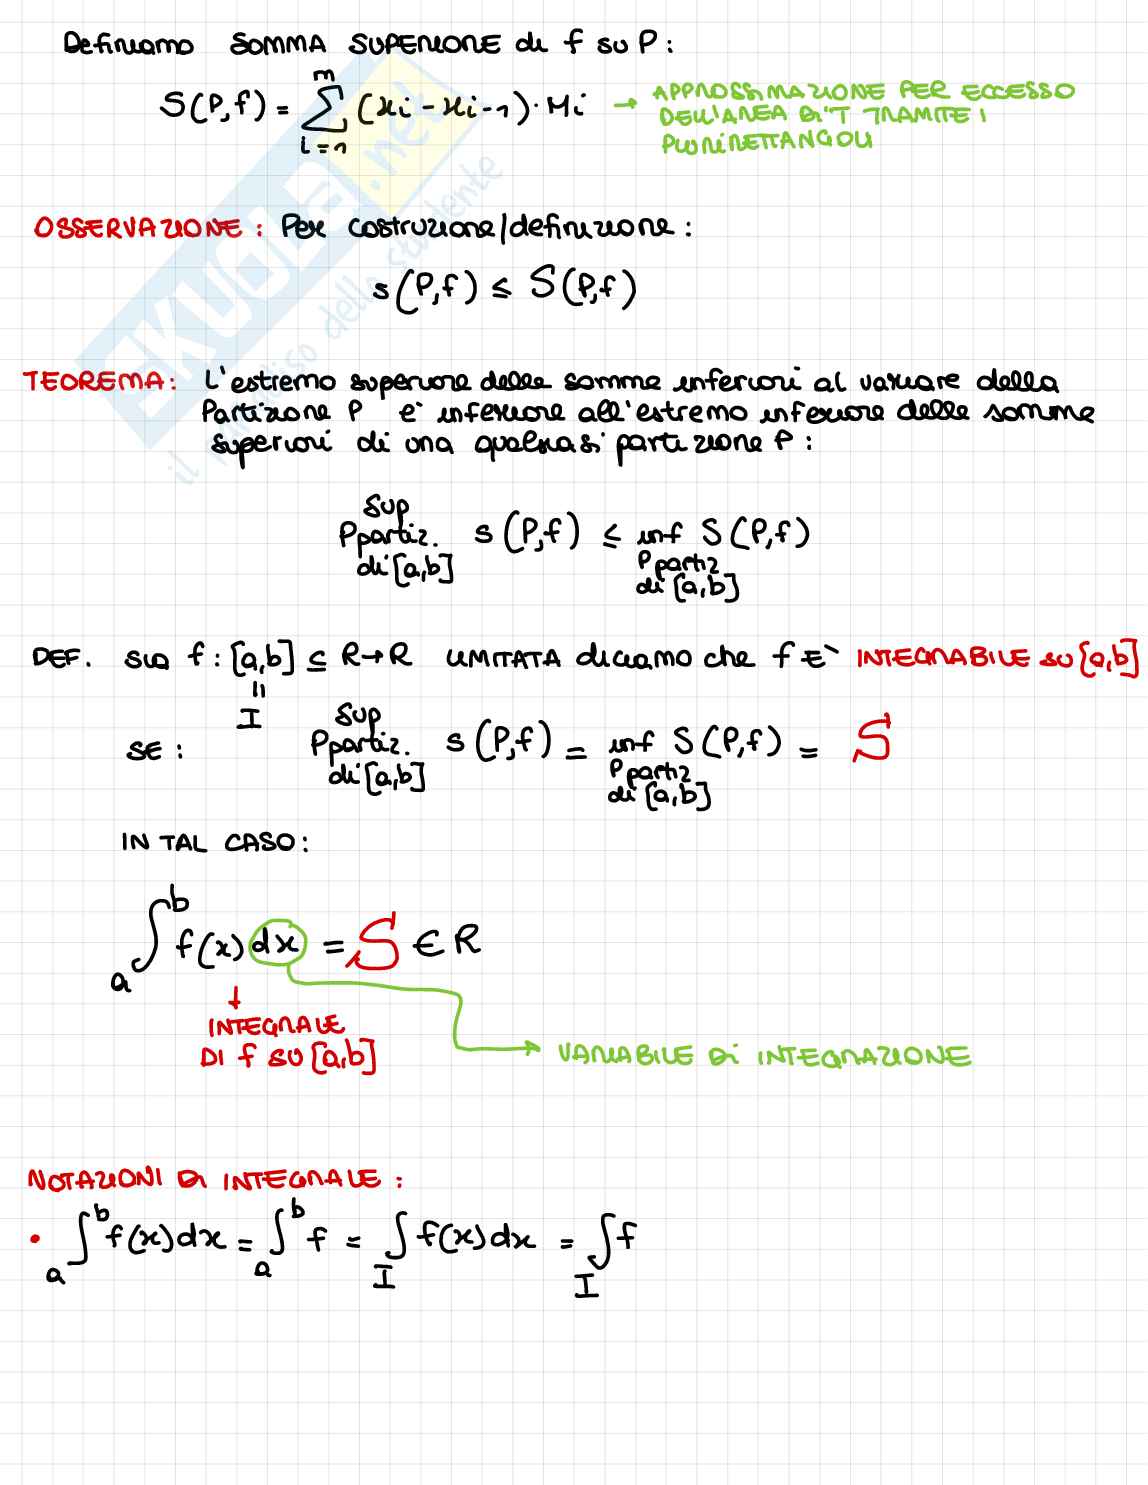 Definiamo SOMMA SUPERIORE di f su P:
S(P,f) = m ∑ i=1 (xi - xi-1) · Mi → APPROSSIMAZIONE PER ECCESSO
DELL'AREA DI T TRAMITE I
PLURIRETTANGOLI
OSSERVAZIONE: Per costruzione/definizione:
s(P,f) ≤ S(P,f)
TEOREMA: L'estremo superiore delle somme inferiori al variare della
Partizione P e' inferiore all'estremo inferiore delle somme
superiori di una qualsiasi partizione P:
sup P partiz. di [a,b] s(P,f) ≤ inf P partiz di [a,b] S(P,f)
DEF. sia f: [a,b] ⊆ R→R LIMITATA diciamo che f E` INTEGRABILE su [a,b]
=
I
SE: sup P partiz. di [a,b] s(P,f) = inf P partiz di [a,b] S(P,f) = S
IN TAL CASO:
a∫b f(x) dx = S ∈ R
↓
INTEGRALE
DI f SU [a,b]
→ VARIABILE DI INTEGRAZIONE
NOTAZIONI DI INTEGRALE:
• a∫b f(x)dx = a∫b f = ∫I f(x)dx = ∫I f
SKUOLA.net
il paradiso dello studente